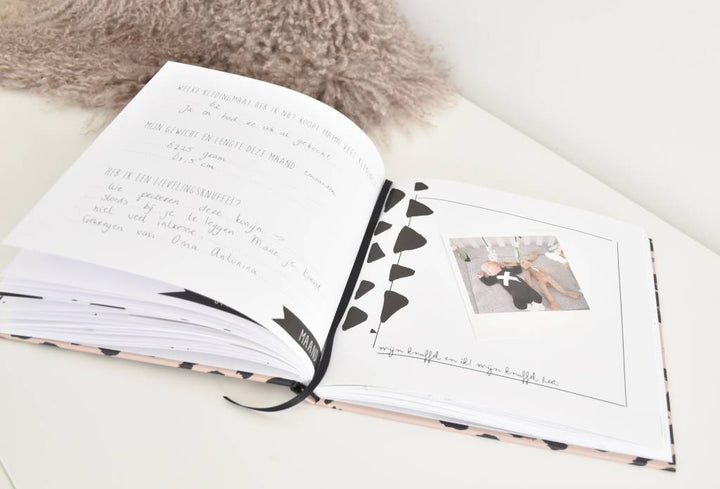 WELKE KLEDINGMAAT HEB IK NU? KOOPT MAMA VEEL KLEDING?
62
Ja en had ze ook al gekocht
MIJN GEWICHT EN LENGTE DEZE MAAND
6225 gram
61,5 cm
HEB IK EEN LIEVELINGSKNUFFEL?
We proberen deze konijn →
steeds bij je te leggen Maar je toont
niet veel interesse
Gekregen van Oma Antonina
MAAND
mijn knuffel en ik! mijn knuffel heet